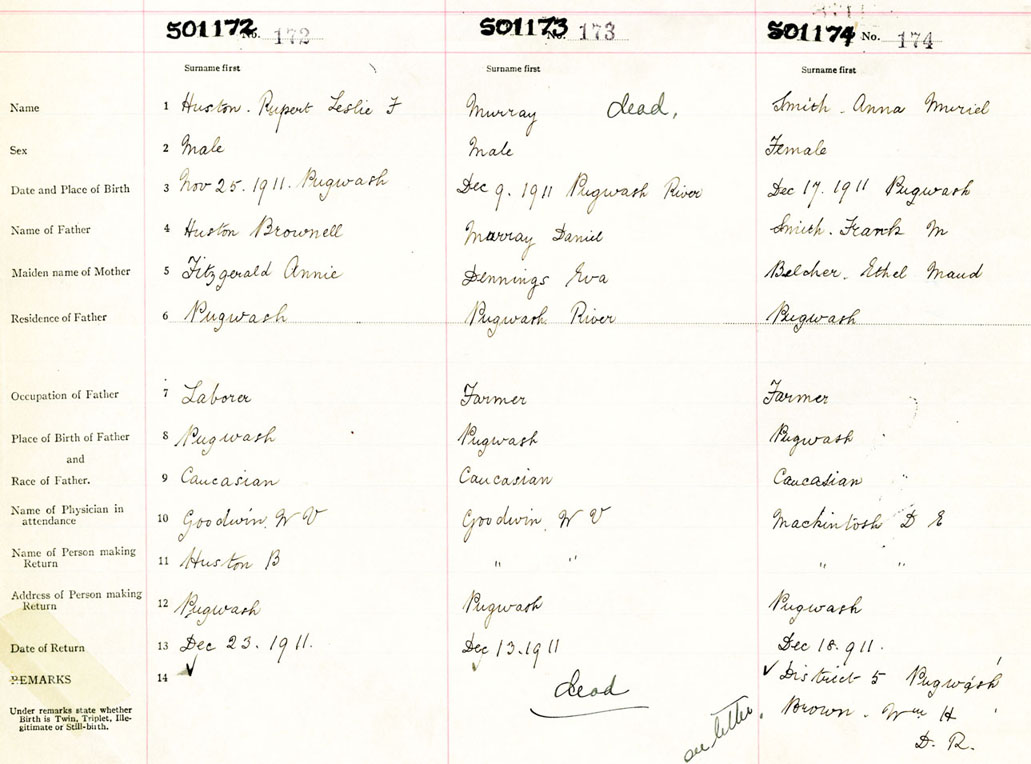 S01172 No. 172 S01173 No. 173 S01174 No. 174
Surname first Surname first Surname first
Name 1 Huston. Rupert Leslie F Murray dead, Smith. Anna Muriel
Sex 2 Male Male Female
Date and Place of Birth 3 Nov 25. 1911. Pugwash Dec 9. 1911 Pugwash River Dec 17. 1911 Pugwash
Name of Father 4 Huston Brownell Murray Daniel Smith. Frank M
Maiden name of Mother 5 Fitzgerald Annie Dennings Eva Belcher. Ethel Maud
Residence of Father 6 Pugwash Pugwash River Pugwash
Occupation of Father 7 Laborer Farmer Farmer
Place of Birth of Father 8 Pugwash Pugwash Pugwash
and
Race of Father. 9 Caucasian Caucasian Caucasian "
Name of Physician in
attendance 10 Goodwin. W V Goodwin. W V Mackintosh D E
Name of Person making
Return 11 Huston B " " " "
Address of Person making
Return 12 Pugwash Pugwash Pugwash
Date of Return 13 Dec 23. 1911. Dec 13. 1911 Dec 18. 911.
REMARKS 14 ✓ dead ✓ District 5 Pugwash
Under remarks state whether
Birth is Twin, Triplet, Ille-
gitimate or Still-birth.
see letter.
Brown. Wm H
D. R.